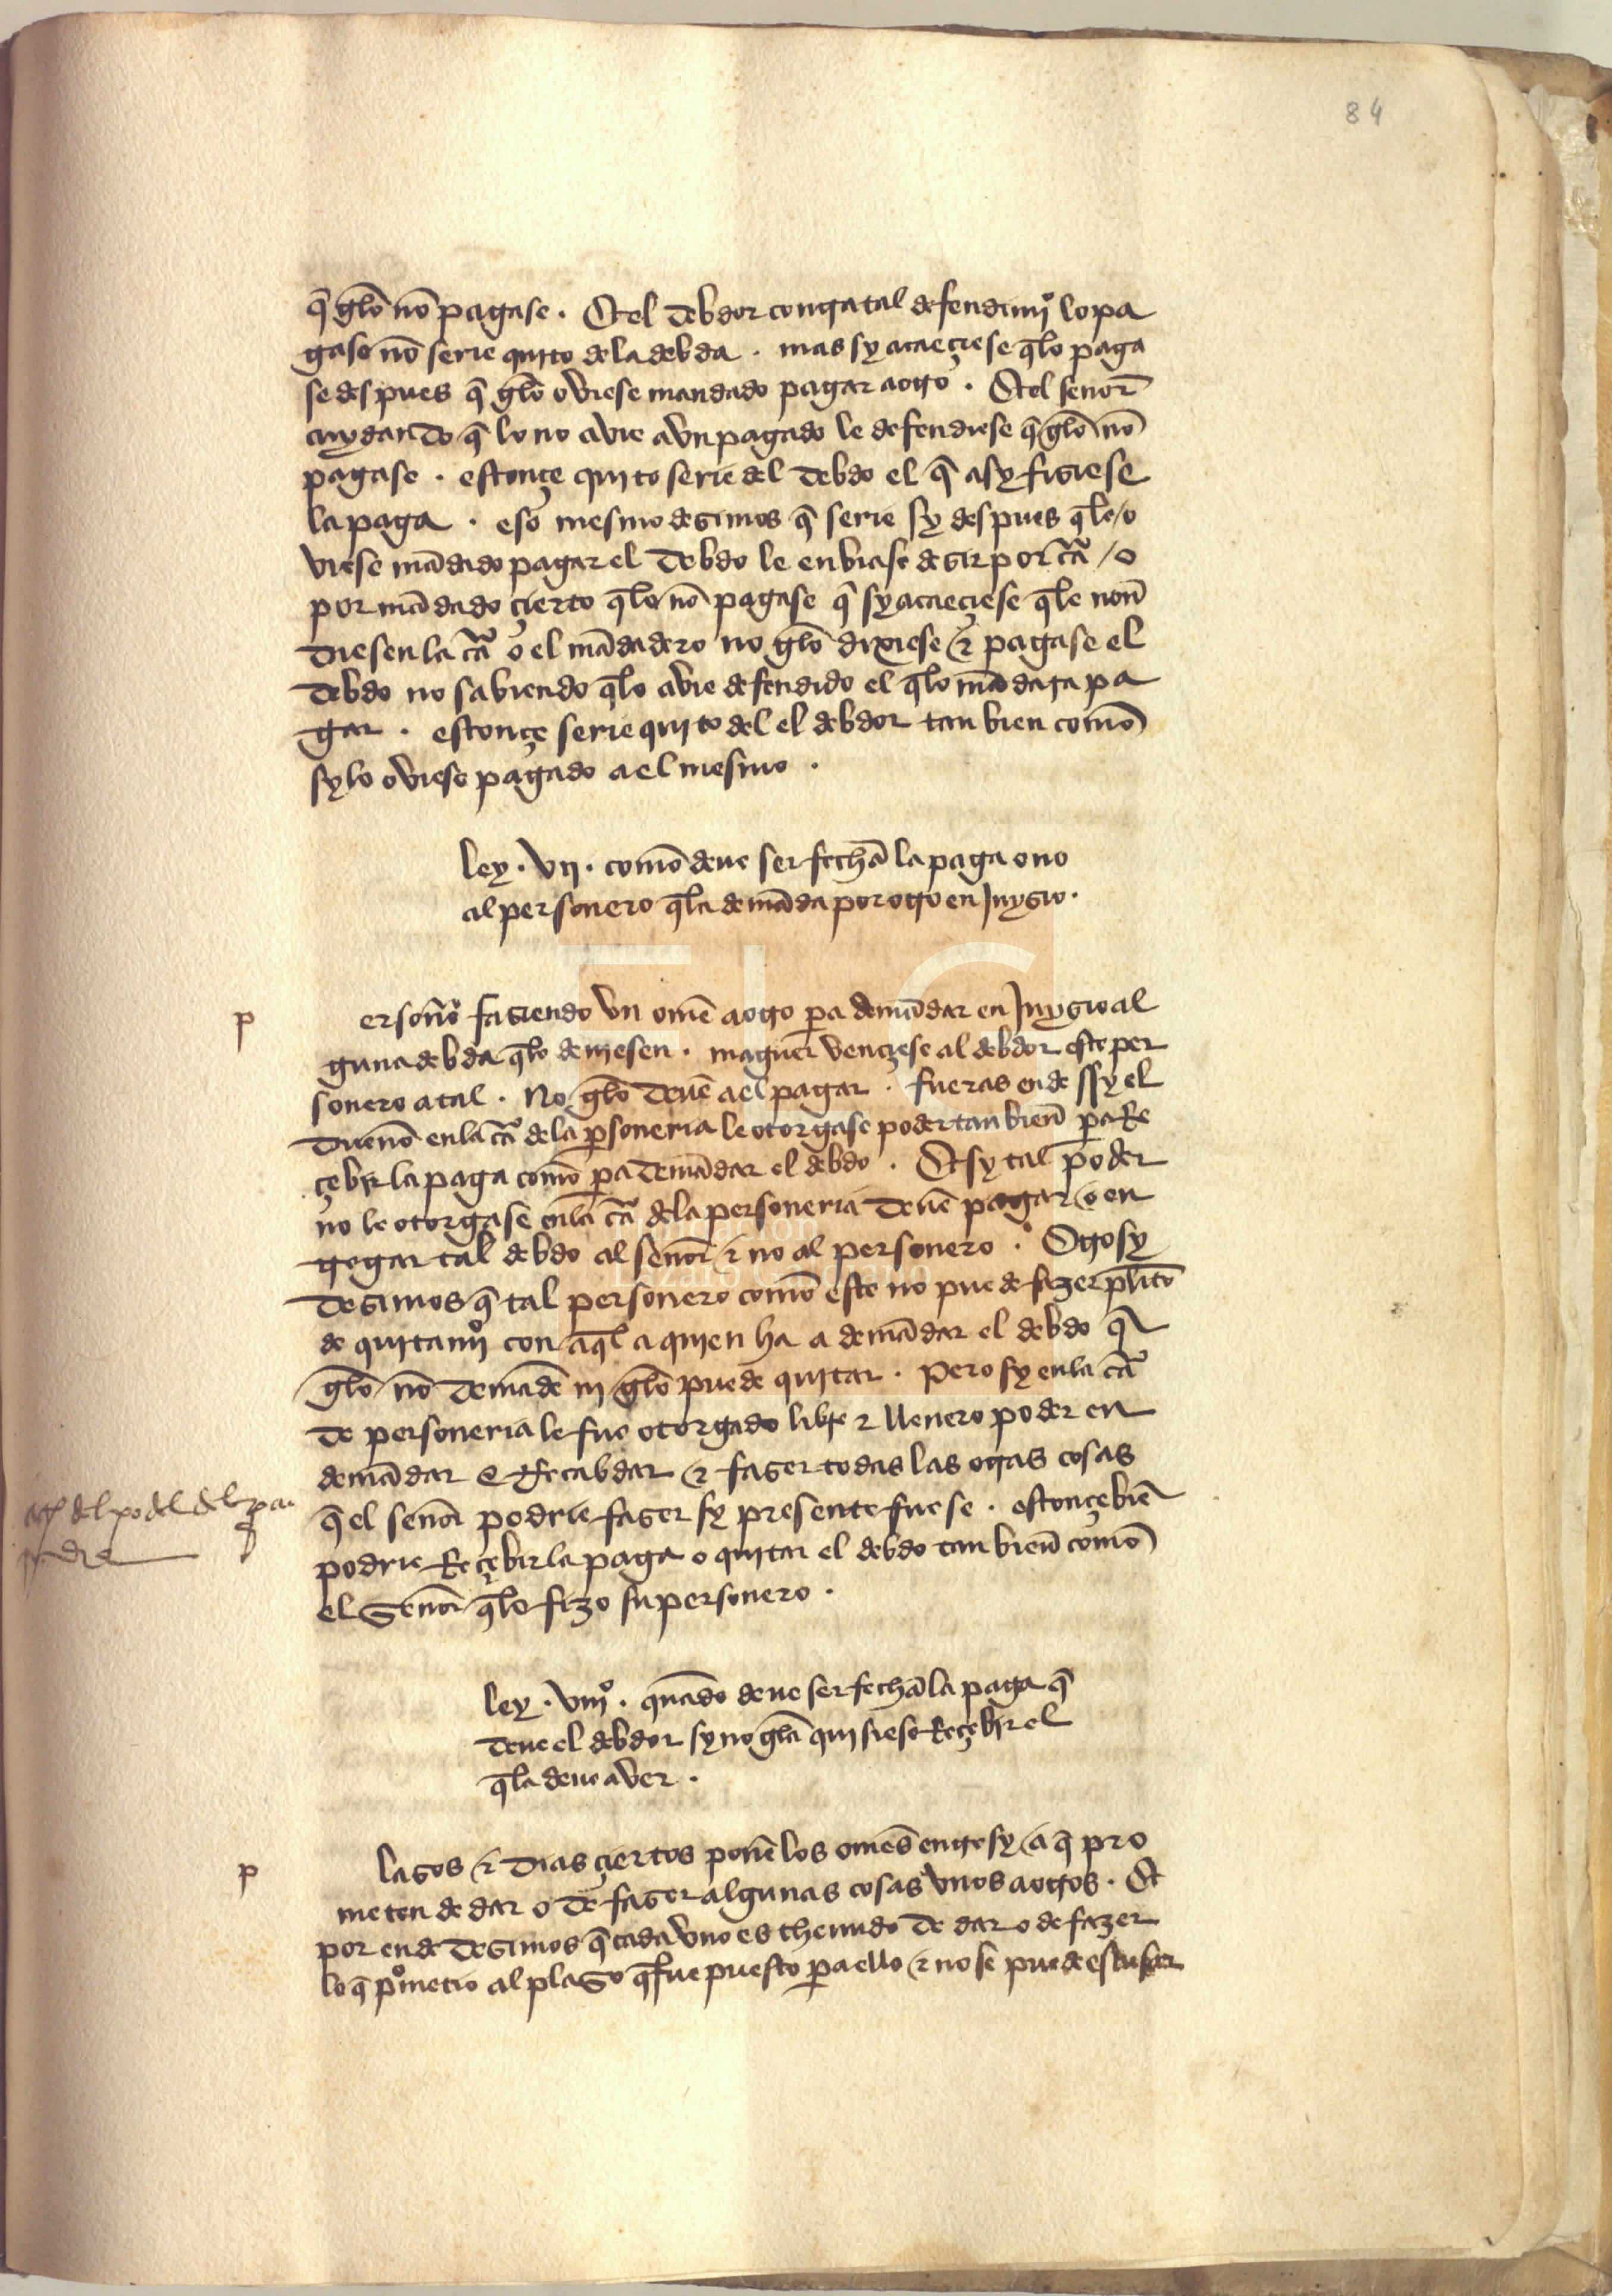 84
q̃ gelo nõ pagase . Et el debdor contra tal defendimiº lo pa
gase nõ serie quito de la debda . mas sy acaeçiese q̃lo paga
se despues q̃ gelo oviese mandado pagar a otro . Et el señor
cuydando q̃ lo no avie avn pagado le defendiese q̃ gelo nõ
pagase . estonçe quito serie del debdo el q̃ asy fisiese
la paga . eso mesmo desimos q̃ serie sy despues q̃le / o
viese mãdado pagar el debdo le enbiase desir por cãr / o
por mãdado çierto q̃lo nõ pagase q̃ sy acaeçiese q̃le non
diesen la cãr o el mãdadero no gelo dixiese & pagase el
debdo no sabiendo q̃lo avie defendido el q̃lo mãdara pa
gar . estonçe serie quito del el debdor tan bien como
sy lo oviese pagado a el mesmo .
ley . vii . como deue ser fecha la paga o no
al personero q̃la demãda por otro en juysio .
p
ersonºo fasiendo vn ome a otro pa demãdar en juysio al
guna debda q̃lo deuiesen . maguer vençiese al debdor este per
sonero atal . No gelo deuẽ a el pagar . fueras ende ssy el
dueno en la cãr de la psoneria le otorgase poder tan bien pa Re
çebir la paga como pa demãdar el debdo . Et sy tal poder
no le otorgase en la cãr de la personeria deuẽ pagar o en
tregar tal debdo al señor & no al personero . Otrosy
desimos q̃ tal personero como este no puede fazer plito
de quitamiº con aq̃l a quien ha a demãdar el debdo q̃
gelo nõ demãde ni gelo puede quitar . Pero sy en la cãr
de personeria le fue otorgado libre & llenero poder en
demãdar e Recabdar & faser todas las otras cosas
q̃ el señor podrie faser sy presente fuese . estonçe biẽ
podrie Reçebir la paga o quitar el debdo tan bien como
el Señor q̃le fizo su personero .
del poder del
ley . viiiº . quãdo deue ser fecha la paga q̃
deue el debdor sy no gela quisiese Reçebir el
q̃la deue aver .
p
lasos & dias çiertos ponẽ los omes entre sy a q̃ pro
meten de dar o de faser algunas cosas vnos a otros . Et
por ende desimos q̃ cada vno es thenudo de dar o de fazer
lo q̃ pºmetio al plaso q̃ fue puesto pa ello & no se puede escusar